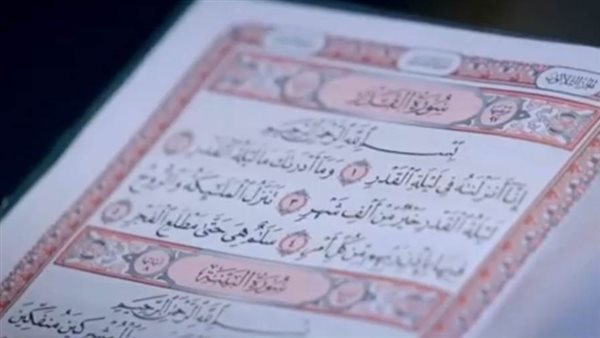 سُورَةُ القَدْرِ
بِسْمِ ٱللَّهِ ٱلرَّحْمَٰنِ ٱلرَّحِيمِ
إِنَّا أَنزَلْنَٰهُ فِى لَيْلَةِ ٱلْقَدْرِ ١ وَمَآ أَدْرَىٰكَ مَا لَيْلَةُ ٱلْقَدْرِ ٢
لَيْلَةُ ٱلْقَدْرِ خَيْرٌ مِّنْ أَلْفِ شَهْرٍ ٣ تَنَزَّلُ ٱلْمَلَٰٓئِكَةُ وَٱلرُّوحُ
فِيهَا بِإِذْنِ رَبِّهِم مِّن كُلِّ أَمْرٍ ٤ سَلَٰمٌ هِىَ حَتَّىٰ مَطْلَعِ ٱلْفَجْرِ ٥
سُورَةُ البَيِّنَةِ
بِسْمِ ٱللَّهِ ٱلرَّحْمَٰنِ ٱلرَّحِيمِ